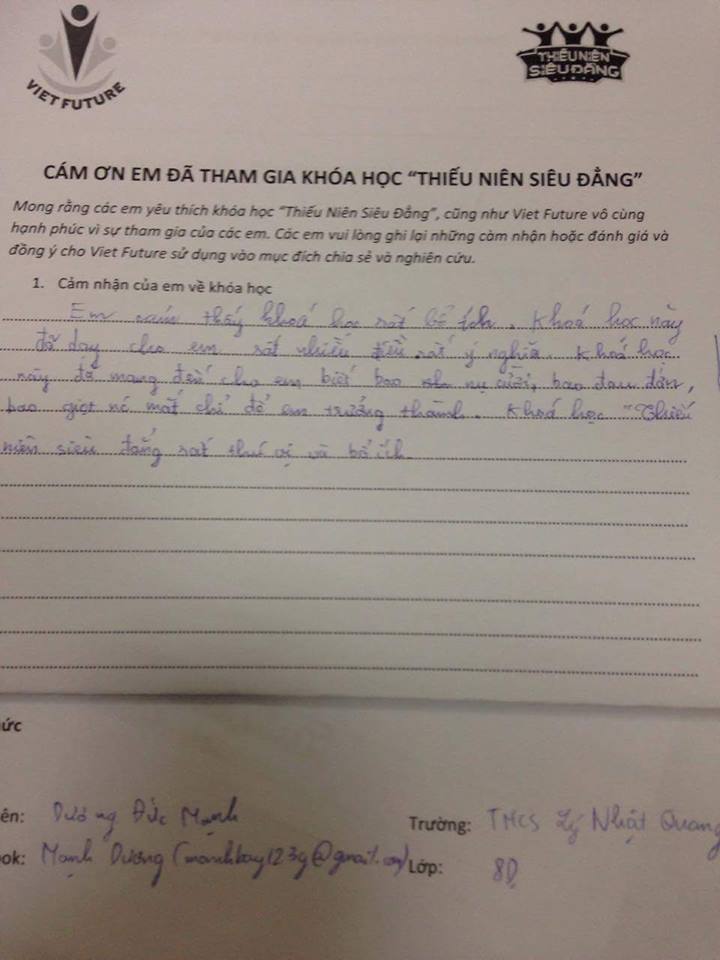 VIET FUTURE
THIẾU NIÊN
SIÊU ĐẲNG
CÁM ƠN EM ĐÃ THAM GIA KHÓA HỌC “THIẾU NIÊN SIÊU ĐẲNG”
Mong rằng các em yêu thích khóa học “Thiếu Niên Siêu Đẳng”, cũng như Viet Future vô cùng
hạnh phúc vì sự tham gia của các em. Các em vui lòng ghi lại những cảm nhận hoặc đánh giá và
đồng ý cho Viet Future sử dụng vào mục đích chia sẻ và nghiên cứu.
1. Cảm nhận của em về khóa học
Em thấy khoá học rất bổ ích. Khoá học này
đã dạy cho em rất nhiều điều rất ý nghĩa. Khoá học
này đã mang đến cho em biết bao nụ cười, bao đau đớn,
bao giọt nước mắt chỉ để em trưởng thành. Khoá học "Thiếu
niên siêu đẳng rất thú vị và bổ ích.
ức
ên: Dương Đức Mạnh
Trường: THCS Lý Nhật Quang
ook: Mạnh Dương (manhboy123g@gmail.com)
Lớp: 8D